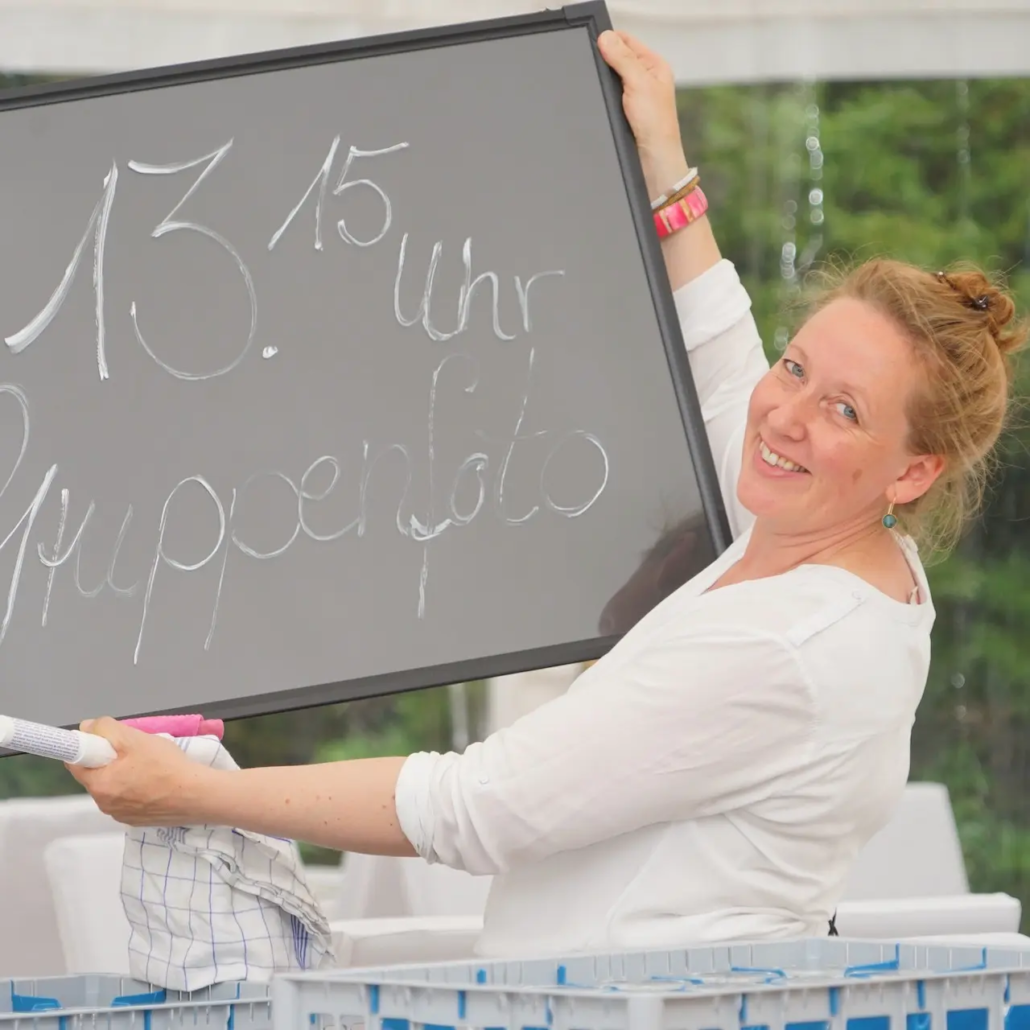 13.15 Uhr
Gruppenfoto